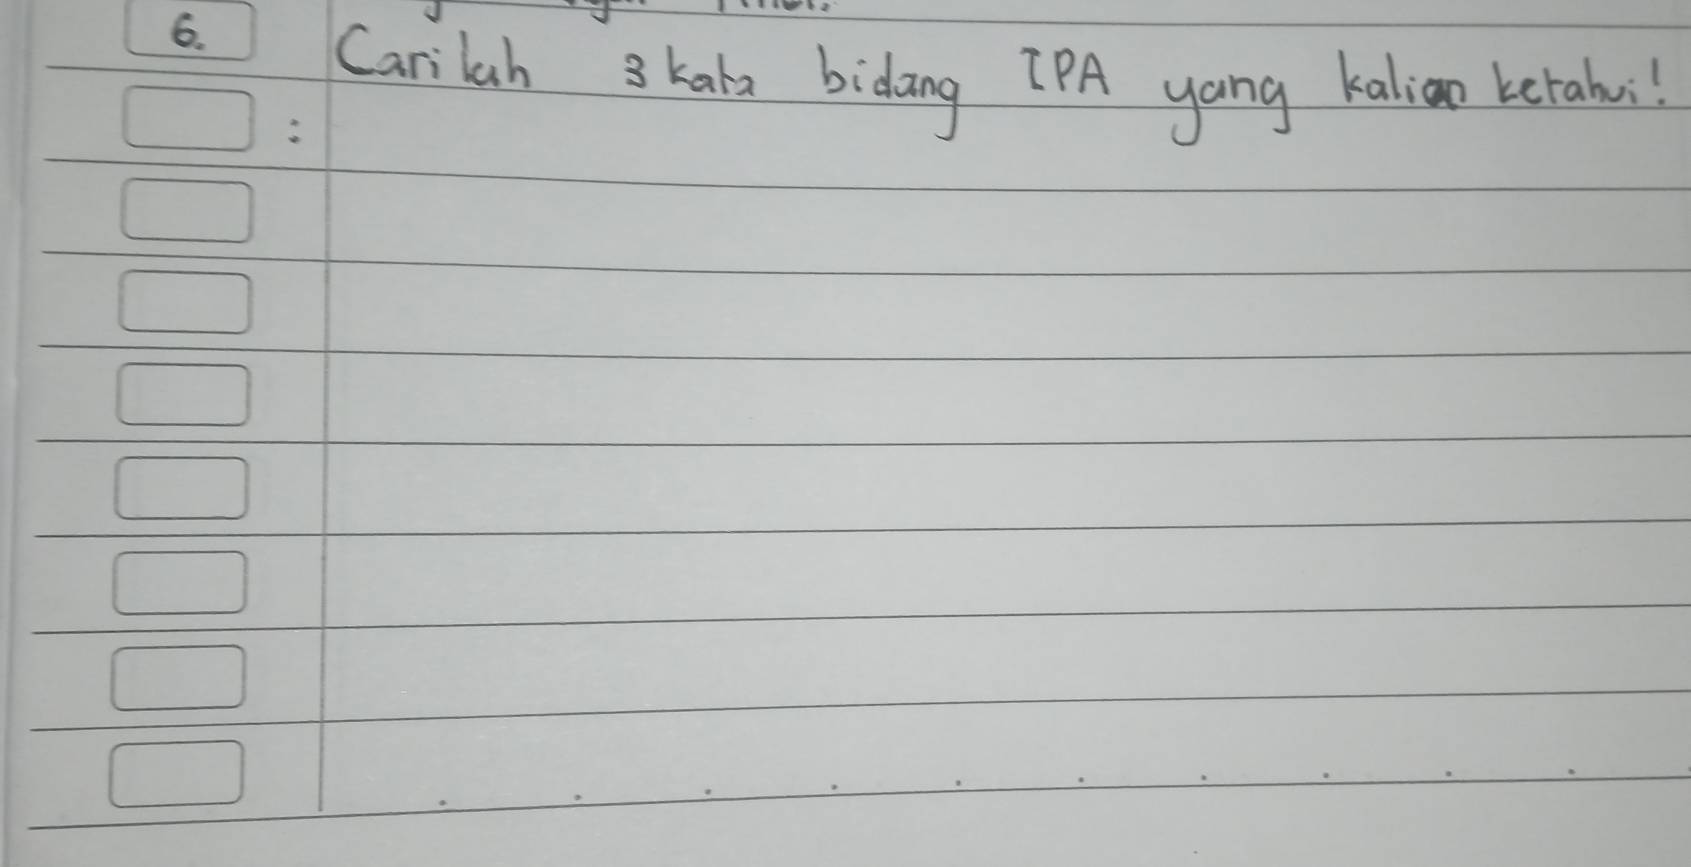 6. Carilah 3 kata bidang IPA yang kalian ketahui!
: